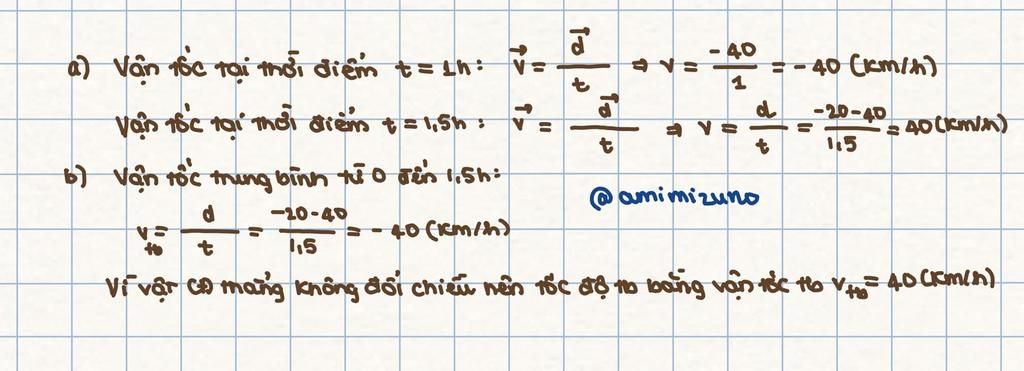 a) Vận tốc tại thời điểm t = 1h: v⃗ = d⃗/t ⇒ v = -40/1 = -40 (km/h)
Vận tốc tại thời điểm t = 1,5h: v⃗ = d⃗/t ⇒ v = d/t = -20-40/1,5 = 40 (km/h)
b) Vận tốc trung bình từ 0 đến 1,5h:
@amimizuno
v_tb = d/t = -20-40/1,5 = -40 (km/h)
Vì vật CĐ thẳng không đổi chiều nên tốc độ tb bằng vận tốc tb v_tb = 40 (km/h)